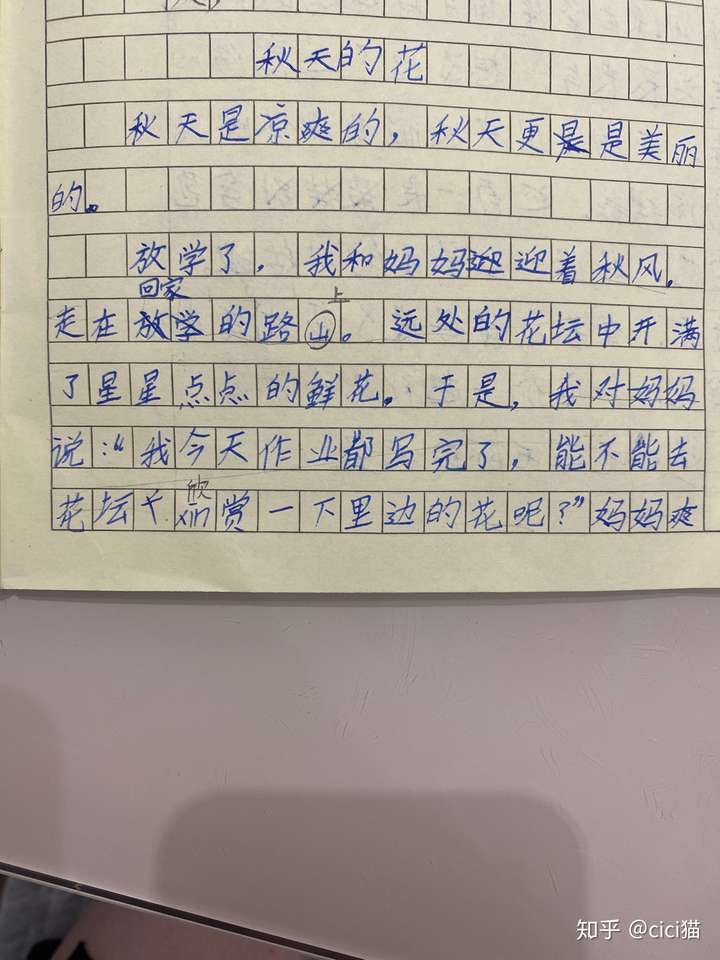 秋天的花
秋天是凉爽的，秋天更是美丽
的。
放学了，我和妈妈迎着秋风，
回家
上
走在放学的路山。远处的花坛中开满
了星星点点的鲜花。于是，我对妈妈
说：“我今天作业都写完了，能不能去
欣
花坛xin赏一下里边的花呢？”妈妈爽
知乎 @cici猫